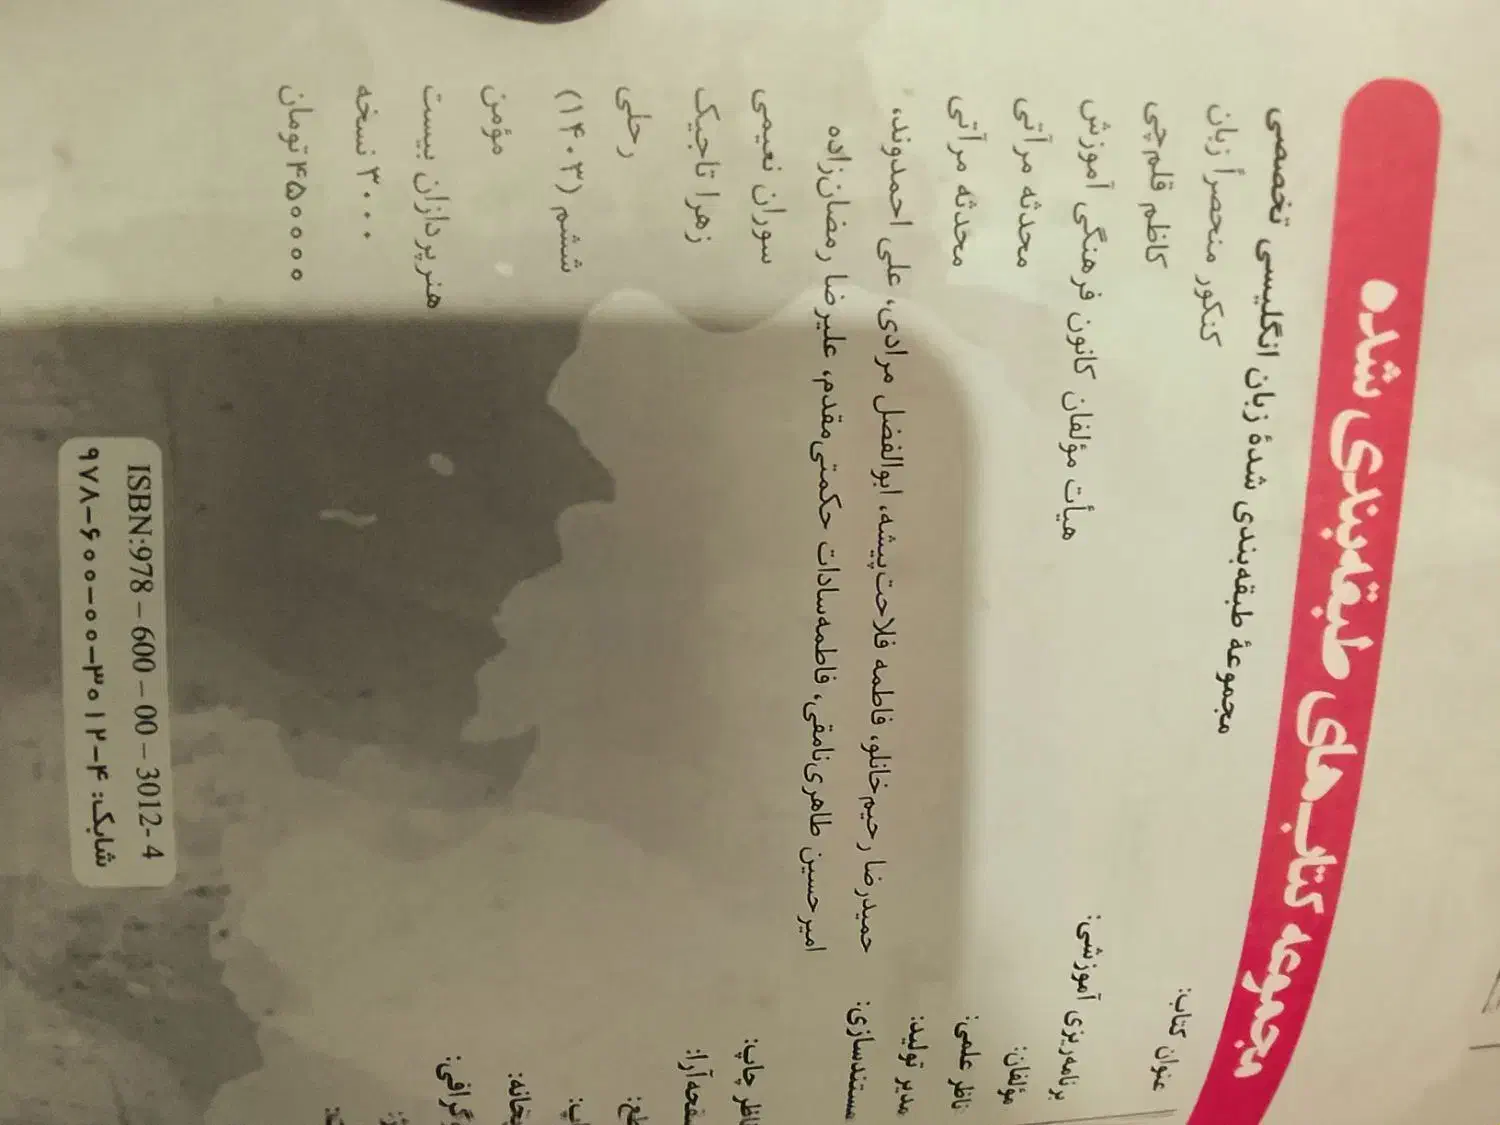 مجموعه کتاب‌های طبقه‌بندی شده
عنوان کتاب: مجموعهٔ طبقه‌بندی شدهٔ زبان انگلیسی تخصصی
کنکور منحصراً زبان
برنامه‌ریزی آموزشی: کاظم قلم‌چی
مؤلفان: هیأت مؤلفان کانون فرهنگی آموزش
ناظر علمی: محدثه مرآتی
مدیر تولید: محدثه مرآتی
مستندسازی: حمیدرضا رحیم‌خانلو، فاطمه فلاحت‌پیشه، ابوالفضل مرادی، علی احمدوند،
امیرحسین طاهری‌نامقی، فاطمه‌سادات حکمتی‌مقدم، علیرضا رمضان‌زاده
ناظر چاپ: سوران نعیمی
صفحه‌آرا: زهرا تاجیک
رحلی
ششم (۱۴۰۳)
مؤمن
هنرپردازان بیست
۳۰۰۰ نسخه
۴۵۰۰۰۰ تومان
ISBN:978 – 600 – 00 – 3012- 4
شابک: ۴-۳۰۱۲-۰۰-۶۰۰-۹۷۸